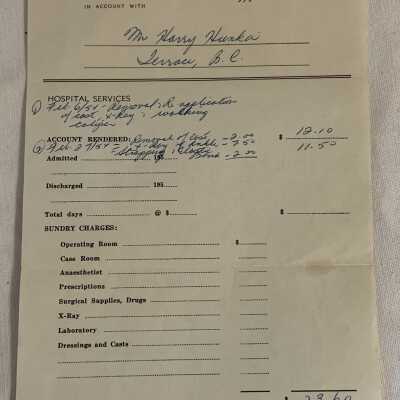 IN ACCOUNT WITH
Mr Harry Huska
Terrace, B.C.
HOSPITAL SERVICES
① Feb 6/54 - Removal & application
of cast, x-ray; walking
ACCOUNT RENDERED: Removal of Cast - 2.00 $ 12.10
② Feb 27/54 = X-ray of Ankle - 7.50 11.50
Admitted 195 Strapping; Elastic Band - 2.00
Discharged 195
Total days @ $ $
SUNDRY CHARGES:
Operating Room $
Case Room
Anaesthetist
Prescriptions
Surgical Supplies, Drugs
X-Ray
Laboratory
Dressings and Casts
$ 23.60